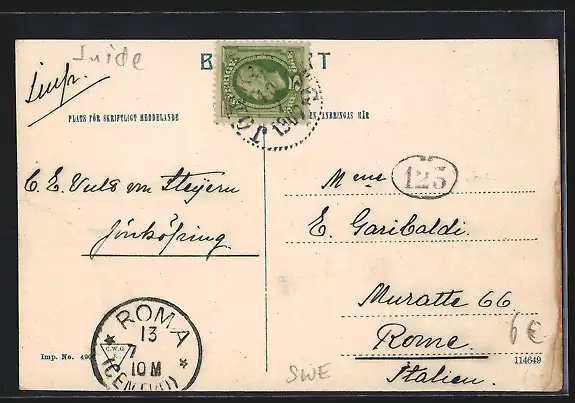 Suide
B KT
Imp.
SVERIGE
JÖ
1907
PLATS FÖR SKRIFTLIGT MEDDELANDE
EN ANBRINGAS HÄR
125
C. E. Vuls von Steijern
Jönköping
Mme
E. Garibaldi.
Muratte 66
Rome
Italien.
6€
ROMA
13
7
10 M
(CENTRO)
C.W.O.
Imp. No. 490
SWE
114649